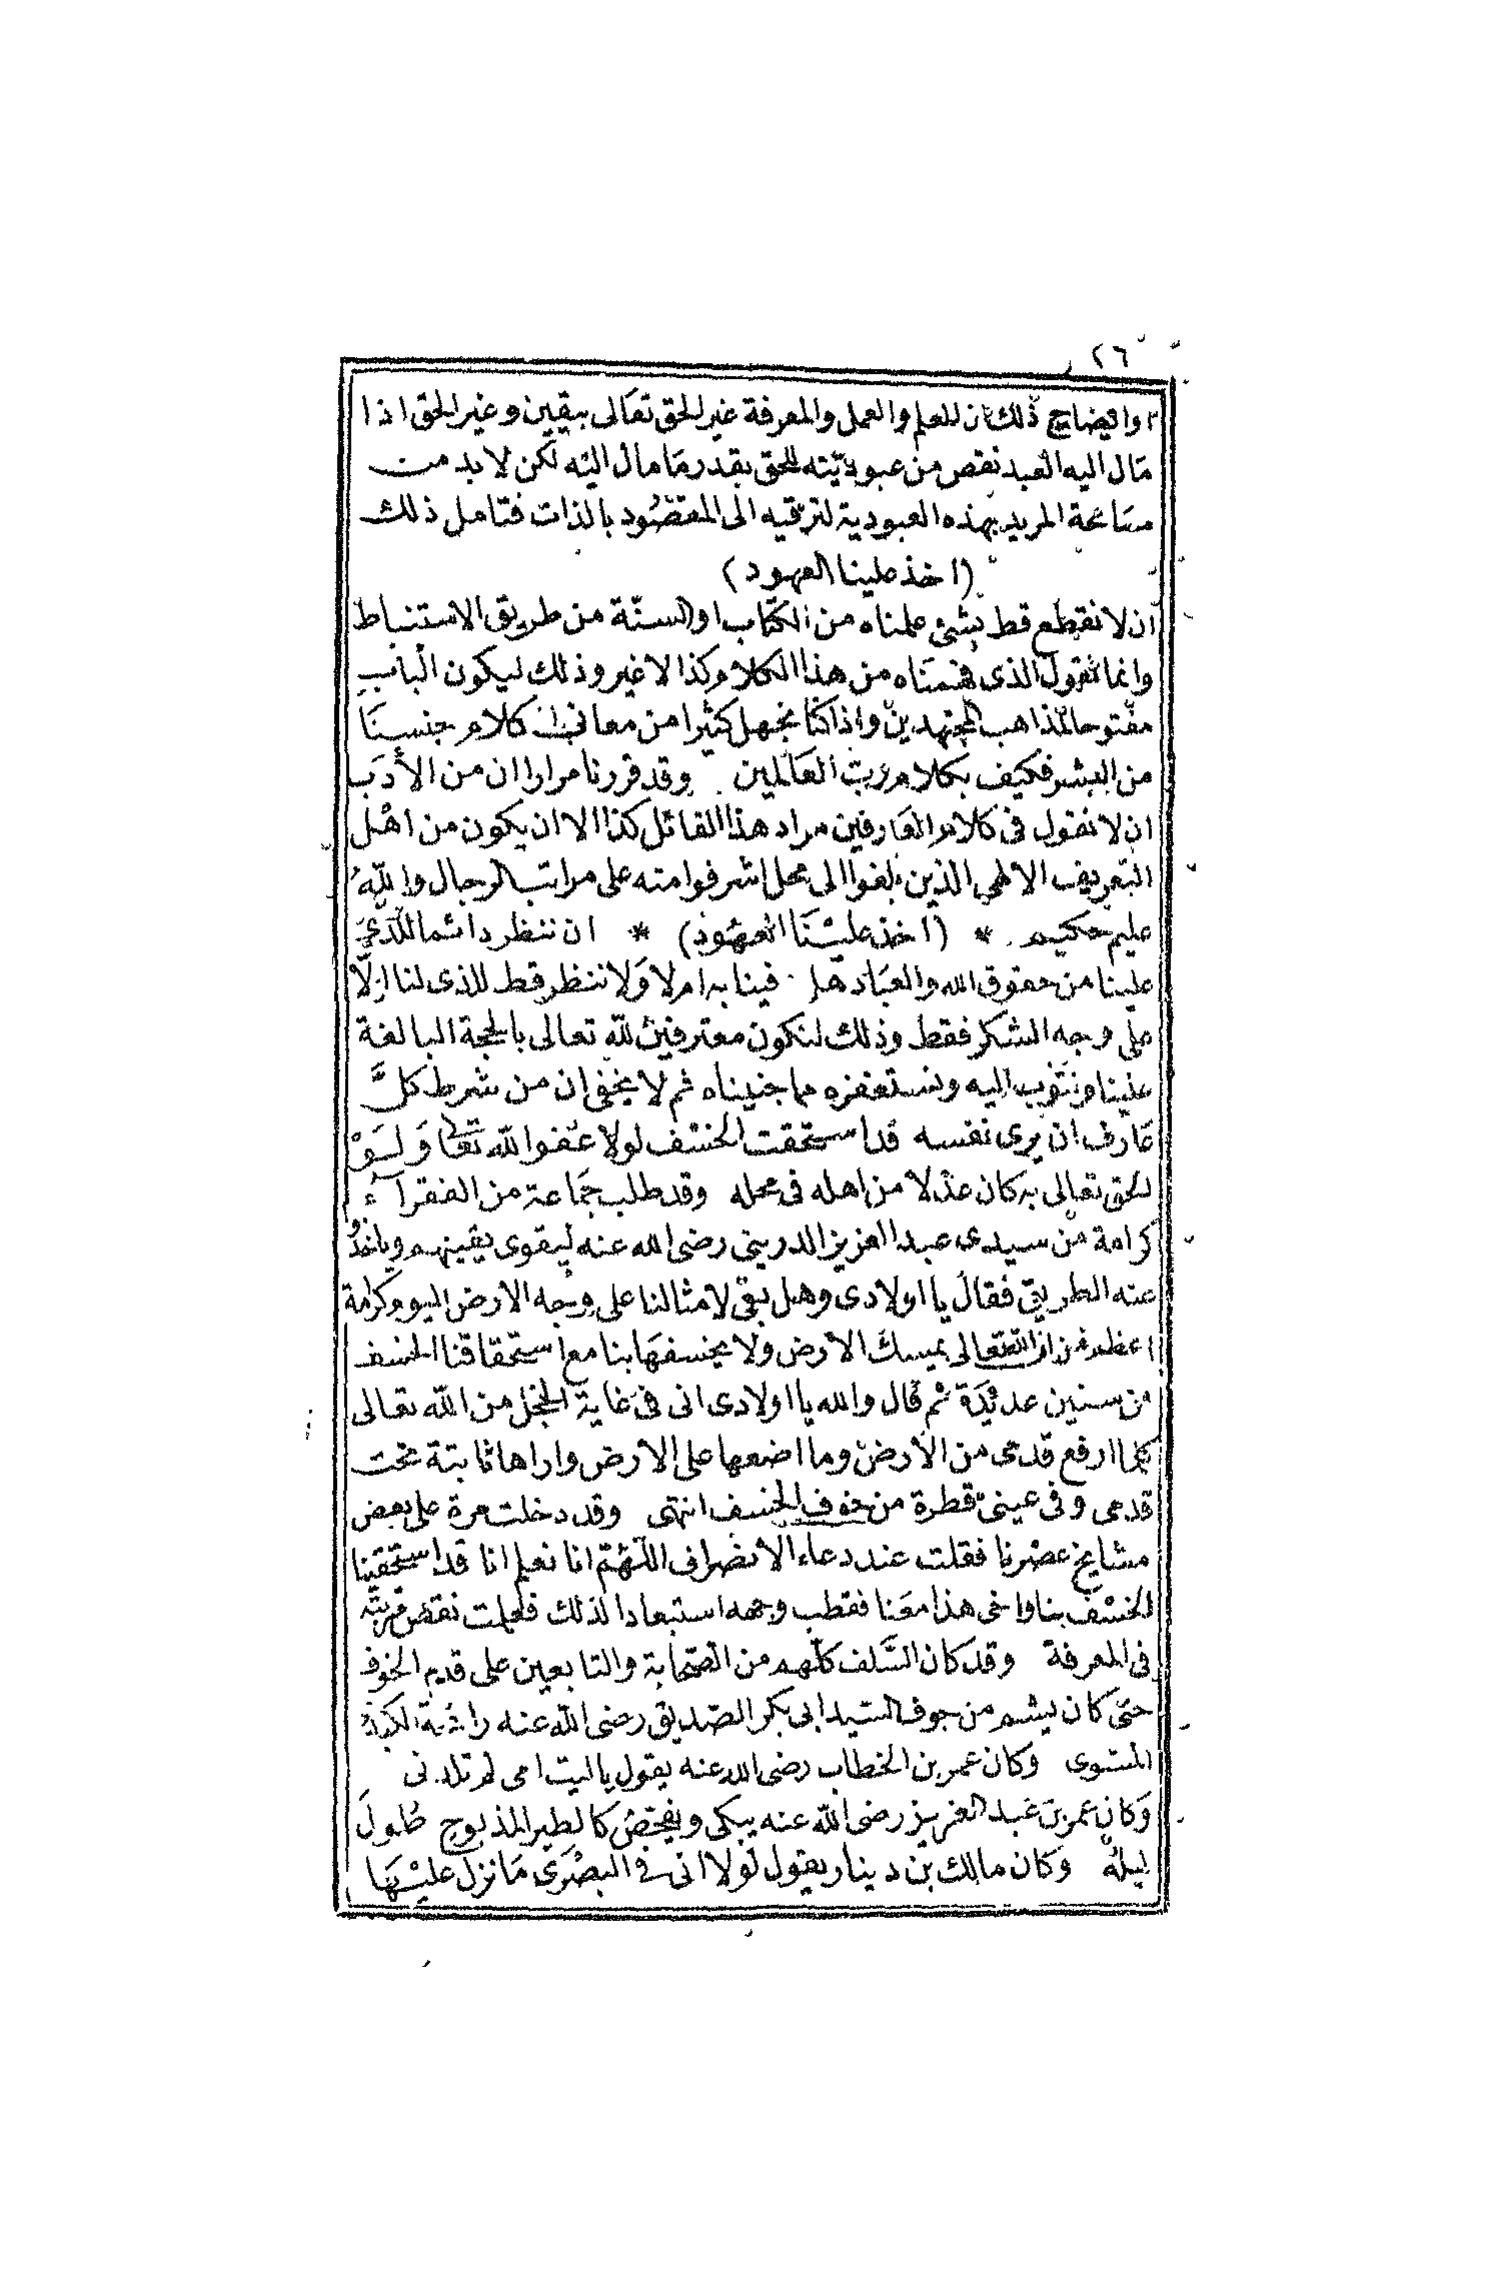 ٢٦
وايضاح ذلك ان للعلم والعمل والمعرفة غير الحق تعالى بيقين وغير الحق اذا
مال اليه العبد نقص من عبوديته للحق بقدر ما مال اليه لكن لا بد من
مسامحة المريد بهذه العبودية لترقيه الى المقصود بالذات فتامل ذلك
(اخذ علينا العهود)
ان لا نقطع قط بشئ علمناه من الكتاب او السنة من طريق الاستنباط
وانما نقول الذى فهمناه من هذا الكلام كذا لا غير وذلك ليكون الباب
مفتوحا لمذاهب المجتهدين واذا كنا نجهل كثيرا من معانى كلام جنسنا
من البشر فكيف بكلام رب العالمين وقد قررنا مرارا ان من الأدب
ان لا نقول فى كلام العارفين مراد هذا القائل كذا الا ان يكون من اهل
التعريف الالهى الذين بلغوا الى محل اشرفوا منه على مراتب الرجال والله
عليم حكيم * (اخذ علينا العهود) * ان ننظر دائما للذى
علينا من حقوق الله والعباد هل فينا به ام لا ولا ننظر قط للذى لنا الا
على وجه الشكر فقط وذلك لنكون معترفين لله تعالى بالحجة البالغة
علينا ونتوب اليه ونستغفره مما جنيناه ثم لا يخفى ان من شرط كل
عارف ان يرى نفسه قد استحقت الخسف لولا عفو الله تعالى ولو
الحق تعالى به كان عدلا من اهله فى محله وقد طلب جماعة من الفقرآء
كرامة من سيدى عبد العزيز الدرينى رضى الله عنه ليقوى يقينهم وياخذوا
عنه الطريق فقال يا اولادى وهل بقى لامثالنا على وجه الارض اليوم كرامة
اعظم من ان الله تعالى يمسك الارض ولا يخسفها بنا مع استحقاقنا الخسف
من سنين عديدة ثم قال والله يا اولادى انى فى غاية الخجل من الله تعالى
كلما ارفع قدمى من الأرض وما اضعها على الأرض واراها ثابتة تحت
قدمى وفى عينى قطرة من خوف الخسف انتهى وقد دخلت مرة على بعض
مشايخ عصرنا فقلت عند دعاء الانصراف اللهم انا نعلم انا قد استحقينا
الخسف بنا واخى هذا معنا فقطب وجهه استبعادا لذلك فعلمت نقص مرتبته
فى المعرفة وقد كان السلف كلهم من الصحابة والتابعين على قدم الخوف
حتى كان يشم من جوف السيد ابى بكر الصديق رضى الله عنه رائحة الكبد
المشوى وكان عمر بن الخطاب رضى الله عنه يقول يا ليت امى لم تلدنى
وكان عمر بن عبد العزيز رضى الله عنه يبكى ويفحص كالطير المذبوح طول
ليله وكان مالك بن دينار يقول لولا انى فى البصرى ما نزل عليها